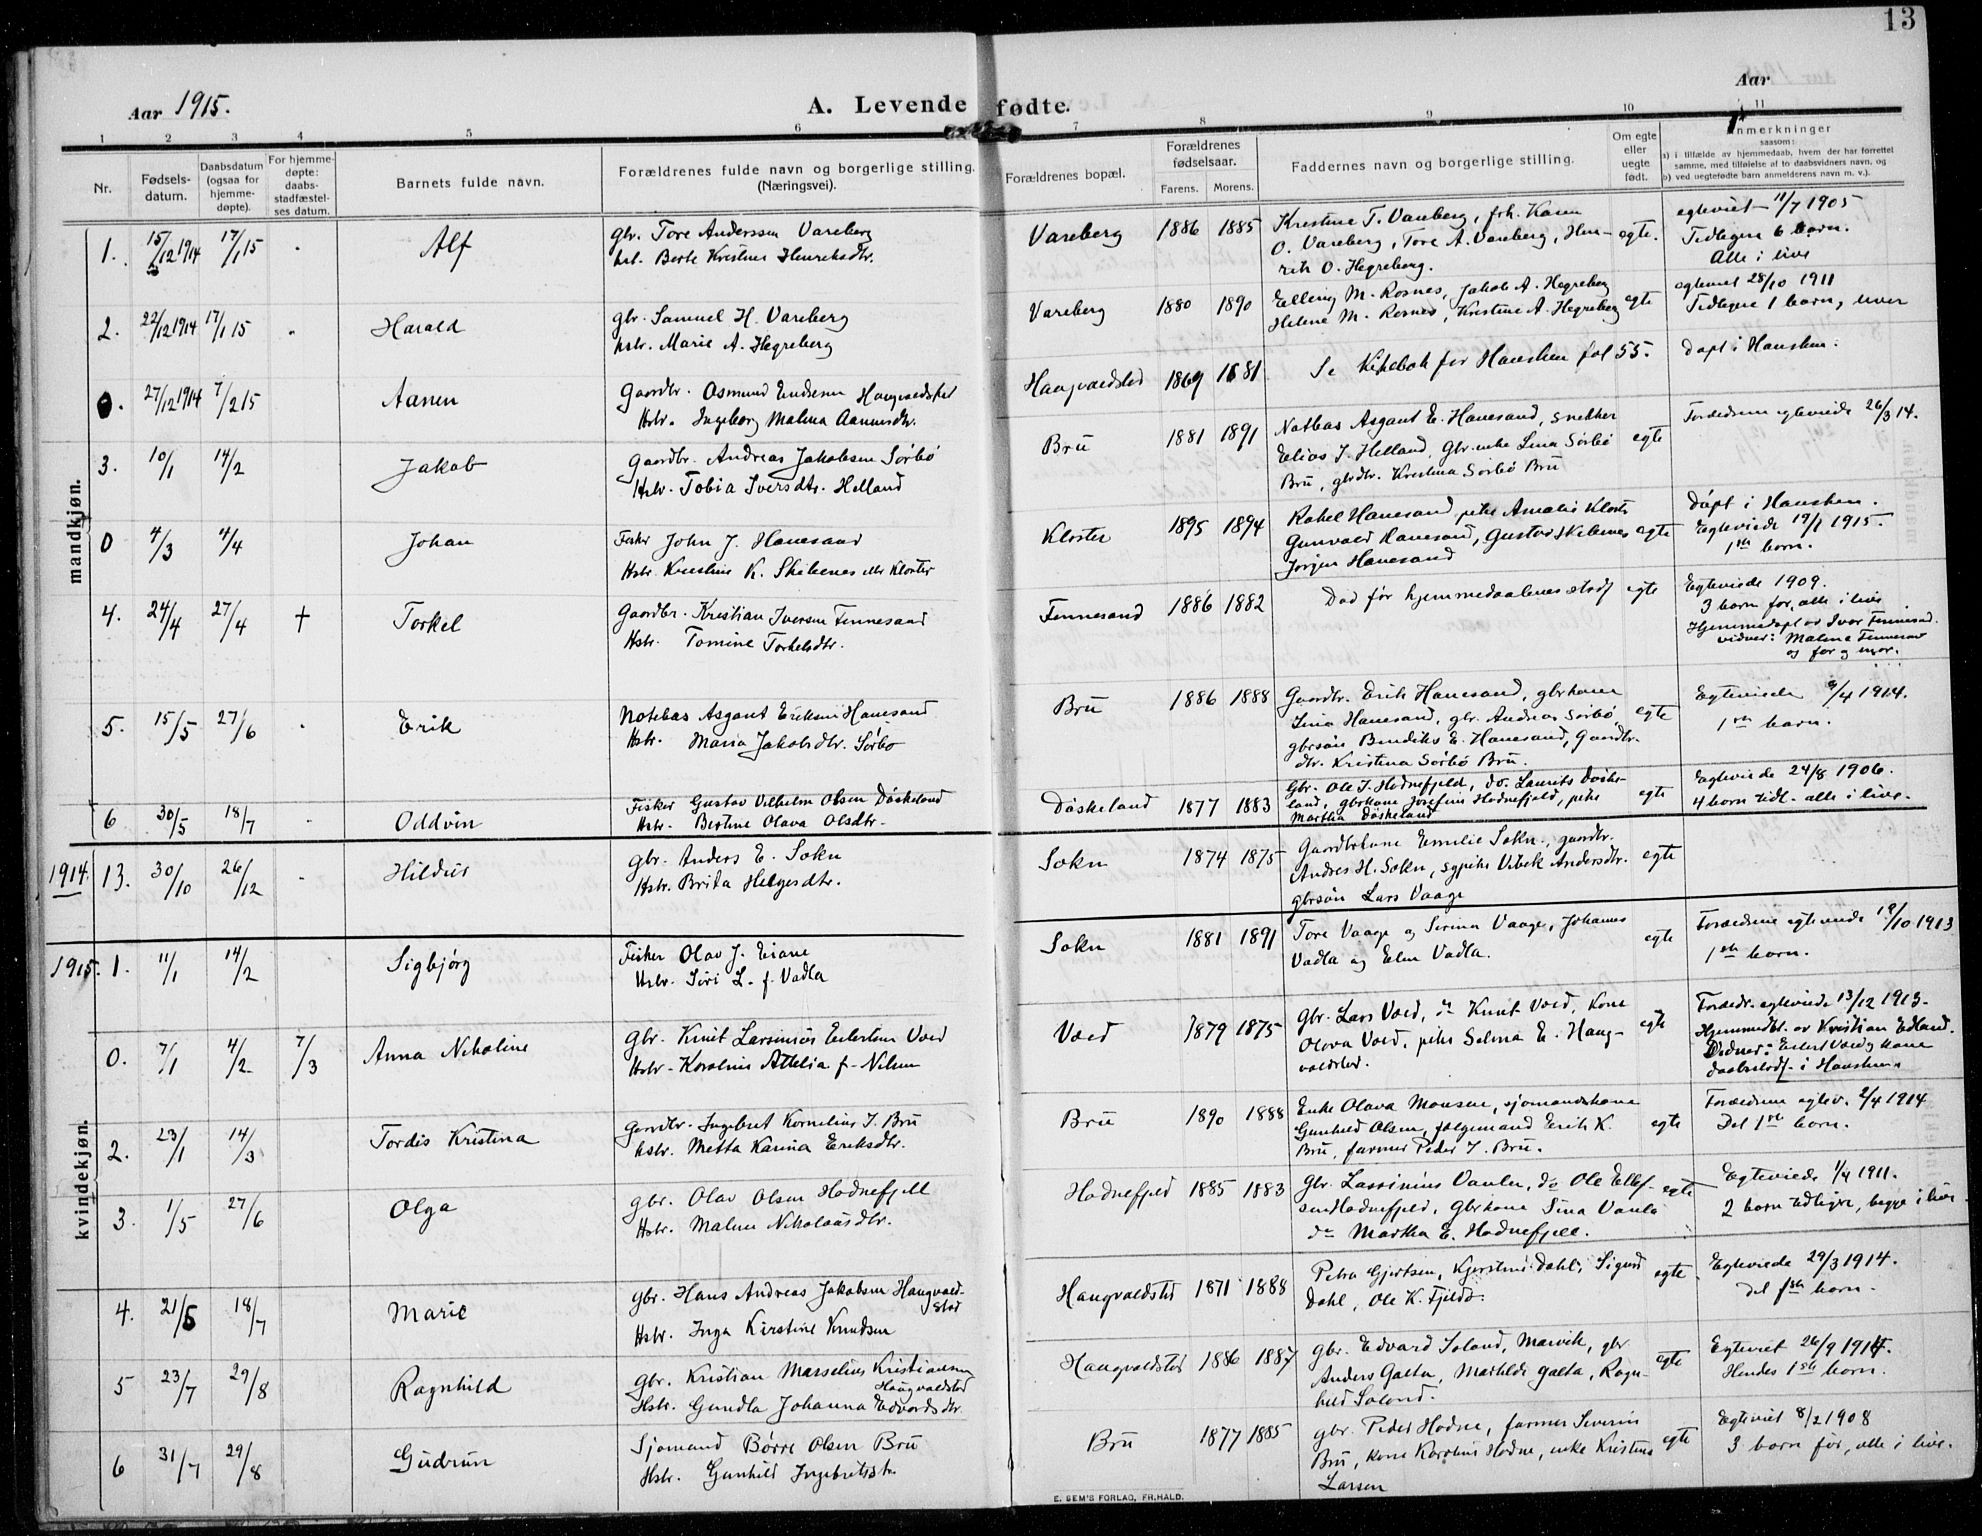 13
Aar 1915.
A. Levende fødte.
Aar
1 2 3 4 5 6 7 8 9 10 11
Nr.
Fødsels-
datum.
Daabsdatum
(ogsaa for
hjemme-
døpte).
For hjemme-
døpte:
daabs-
stadfæstel-
ses datum.
Barnets fulde navn.
Forældrenes fulde navn og borgerlige stilling.
(Næringsvei).
Forældrenes bopæl.
Forældrenes
fødselsaar.
Farens. Morens.
Faddernes navn og borgerlige stilling.
Om egte
eller
uegte
født.
Anmerkninger
saasom:
a) i tilfælde av hjemmedaab, hvem der har forrettet
samme, med tilføielse af to daabsvidners navn, og
b) ved uegtefødte barn anmelderens navn m. v.).
mandkjøn.
1. 15/12 1914 17/1 15 Alf
gbr. Tore Anderssen Vareberg
hst. Berte Kristine Henriksdtr.
Vareberg 1886 1885
Kristine T. Vareberg, frk. Karen
O. Vareberg, Tore A. Vareberg, Hen-
rik O. Hegreberg.
egte.
egteviet 11/7 1905
Tidligere 6 barn.
Alle i live
2. 22/12 1914 17/1 15 Harald
gbr. Samuel H. Vareberg
hstr. Marie A. Hegreberg
Vareberg 1880 1890
Elling M. Rosnes, Jakob A. Hegreberg
Helene M. Rosnes, Kristine A. Hegreberg
egte
egteviet 28/10 1911
Tidligere 1 barn, lever
0. 27/12 1914 7/2 15 Aanen
Gaardbr. Osmund Endresen Haugvaldstad
Hstr. Ingeborg Malena Aanensdtr.
Haugvaldstad 1869 1881
Se Kirkebok for Hausken fol 55.
Døpt i Hausken.
3. 10/1 14/2 Jakob
Gaardbr. Andreas Jakobsen Sørbø
Hstr. Tobia Iversdtr. Helland
Bru 1881 1891
Notbas Asgaut E. Hanesand, snekker
Elias I. Helland, Gbr.enke Lina Sørbø
Bru, gbrdtr. Kristina Sørbø Bru
egte
Foreldrene egteviede 26/3 14.
0 4/3 4/4 Johan
Fisker John J. Hanesand
Hstr. Kristine K. Skibenes eller Kloster
Kloster 1895 1894
Rakel Hanesand, pike Amalie Kloster
Gunvald Hanesand, Gustav Skibenes
Jorgen Hanesand
egte
Døpt i Hausken.
Egteviede 19/1 1915.
1ste barn.
4. 24/4 27/4 † Torkel
Gaardbr. Kristian Iversen Fennesand
Hstr. Tomine Torkelsdtr.
Fennesand 1886 1882
Død før hjemmedaabens stadf
egte
Egteviede 1909.
3 barn før, alle i live.
Hjemmedøpt av Ivar Fennesand.
vidner: Malene Fennesand
og far og mor.
5. 15/5 27/6 Erik
Notebas Asgaut Eriksen Hanesand
Hstr. Maria Jakobsdtr. Sørbø
Bru 1886 1888
Gaardbr. Erik Hanesand, gbrkone
Lina Hanesand, gbr. Andreas Sørbø
gbrsøn Bendiks E. Hanesand, Gaardbr.
dtr. Kristina Sørbø Bru.
egte
Egteviede /4 1914.
1ste barn.
6 30/5 18/7 Oddvin
Fisker Gustav Vilhelm Olsen Døskeland
Hstr. Bertine Olava Olsdtr.
Døskeland 1877 1883
Gbr. Ole I. Hodnefjeld, do. Laurits Døske-
land, gbrkone Josefine Hodnefjeld, pike
Martha Døskeland
egte
Egteviede 24/8 1906.
4 barn tidl. alle i live.
1914. 13. 30/10 26/12 Hildur
gbr. Anders E. Sokn
Hstr. Brita Helgesdtr.
Sokn 1874 1875
Gaardbrkone Emilie Sokn, gaardbr.
Andres H. Sokn, sypike Vibek Andersdtr.
gbrsøn Lars Vaage
egte
kvindekjøn.
1915. 1. 11/1 14/2 Sigbjørg
Fisker Olav J. Eiane
Hstr. Siri L. f. Vadla
Sokn 1881 1891
Tore Vaage og Serina Vaage, Johannes
Vadla og Elen Vadla.
egte
Foreldrene egteviede 19/10 1913
1ste barn.
0. 7/1 4/2 7/3 Anna Nikoline
Gbr. Knut Larsinius Eilertsen Voed
Hstr. Karoline Attelia f. Nilsen
Voed 1879 1875
Gbr. Lars Voed, do Knut Voed, Kone
Olava Voed, pike Selma E. Haug-
valdstad.
egte
Foreldr. egteviede 13/12 1913.
Hjemmedbt. av Kristian Edland.
Vidner: Eilert Voed og kone
daabstadf. i Hausken
2. 23/1 14/3 Tordis Kristina
Gaardbr. Ingebret Kornelius I. Bru
hstr. Metta Karina Eriksdtr.
Bru 1890 1888
Enke Olava Monsen, sjomandskone
Gunhild Olsen, følgemand Erik K.
Bru, farmer Peder I. Bru.
egte
Foreldrene egtev. 2/4 1914
Det 1ste barn.
3. 1/5 27/6 Olga
gbr. Olav Olsen Hodnefjell
Hstr. Malene Nikolaisdtr.
Hodnefjeld 1885 1883
Gbr. Lassinius Vaula, do Ole Ellef-
sen Hodnefjeld, Gbrkone Tina Vaula
do Martha E. Hodnefjell.
egte
Egteviede 1/4 1911.
2 barn tidligre, begge i live.
4. 21/5 18/7 Marie
gbr. Hans Andreas Jakobsen Haugvald-
stad
Hstr. Inga Kirstine Knudsen
Haugvaldstad 1871 1888
Petra Gjertsen, Kjerstine Dahl, Sigurd
Dahl, Ole K. Fjeld.
egte
Egteviede 29/3 1914.
Det første barn.
5 23/7 29/8 Ragnhild
Gbr. Kristian Marselius Kristiansen
Haugvaldstad
Hstr. Gundla Johanna Edvardsdtr.
Haugvaldstad 1886 1887
gbr. Edvard Soland, Marvik, gbr
Anders Galta, Mathilde Galta, Ragn-
hild Soland.
egte
Egteviet 26/9 1914.
Hendes 1ste barn.
6 31/7 29/8 Gudrun
Sjømand Børre Olsen Bru
Hstr. Gunhild Ingebretsdtr.
Bru 1877 1885
gbr. Peder Hodne, farmer Severin
Bru, kone Karoline Hodne, enke Kristine
Larsen
egte
Egteviet 8/2 1908
3 barn før, alle i live.
E. SEM'S FORLAG, FR.HALD.